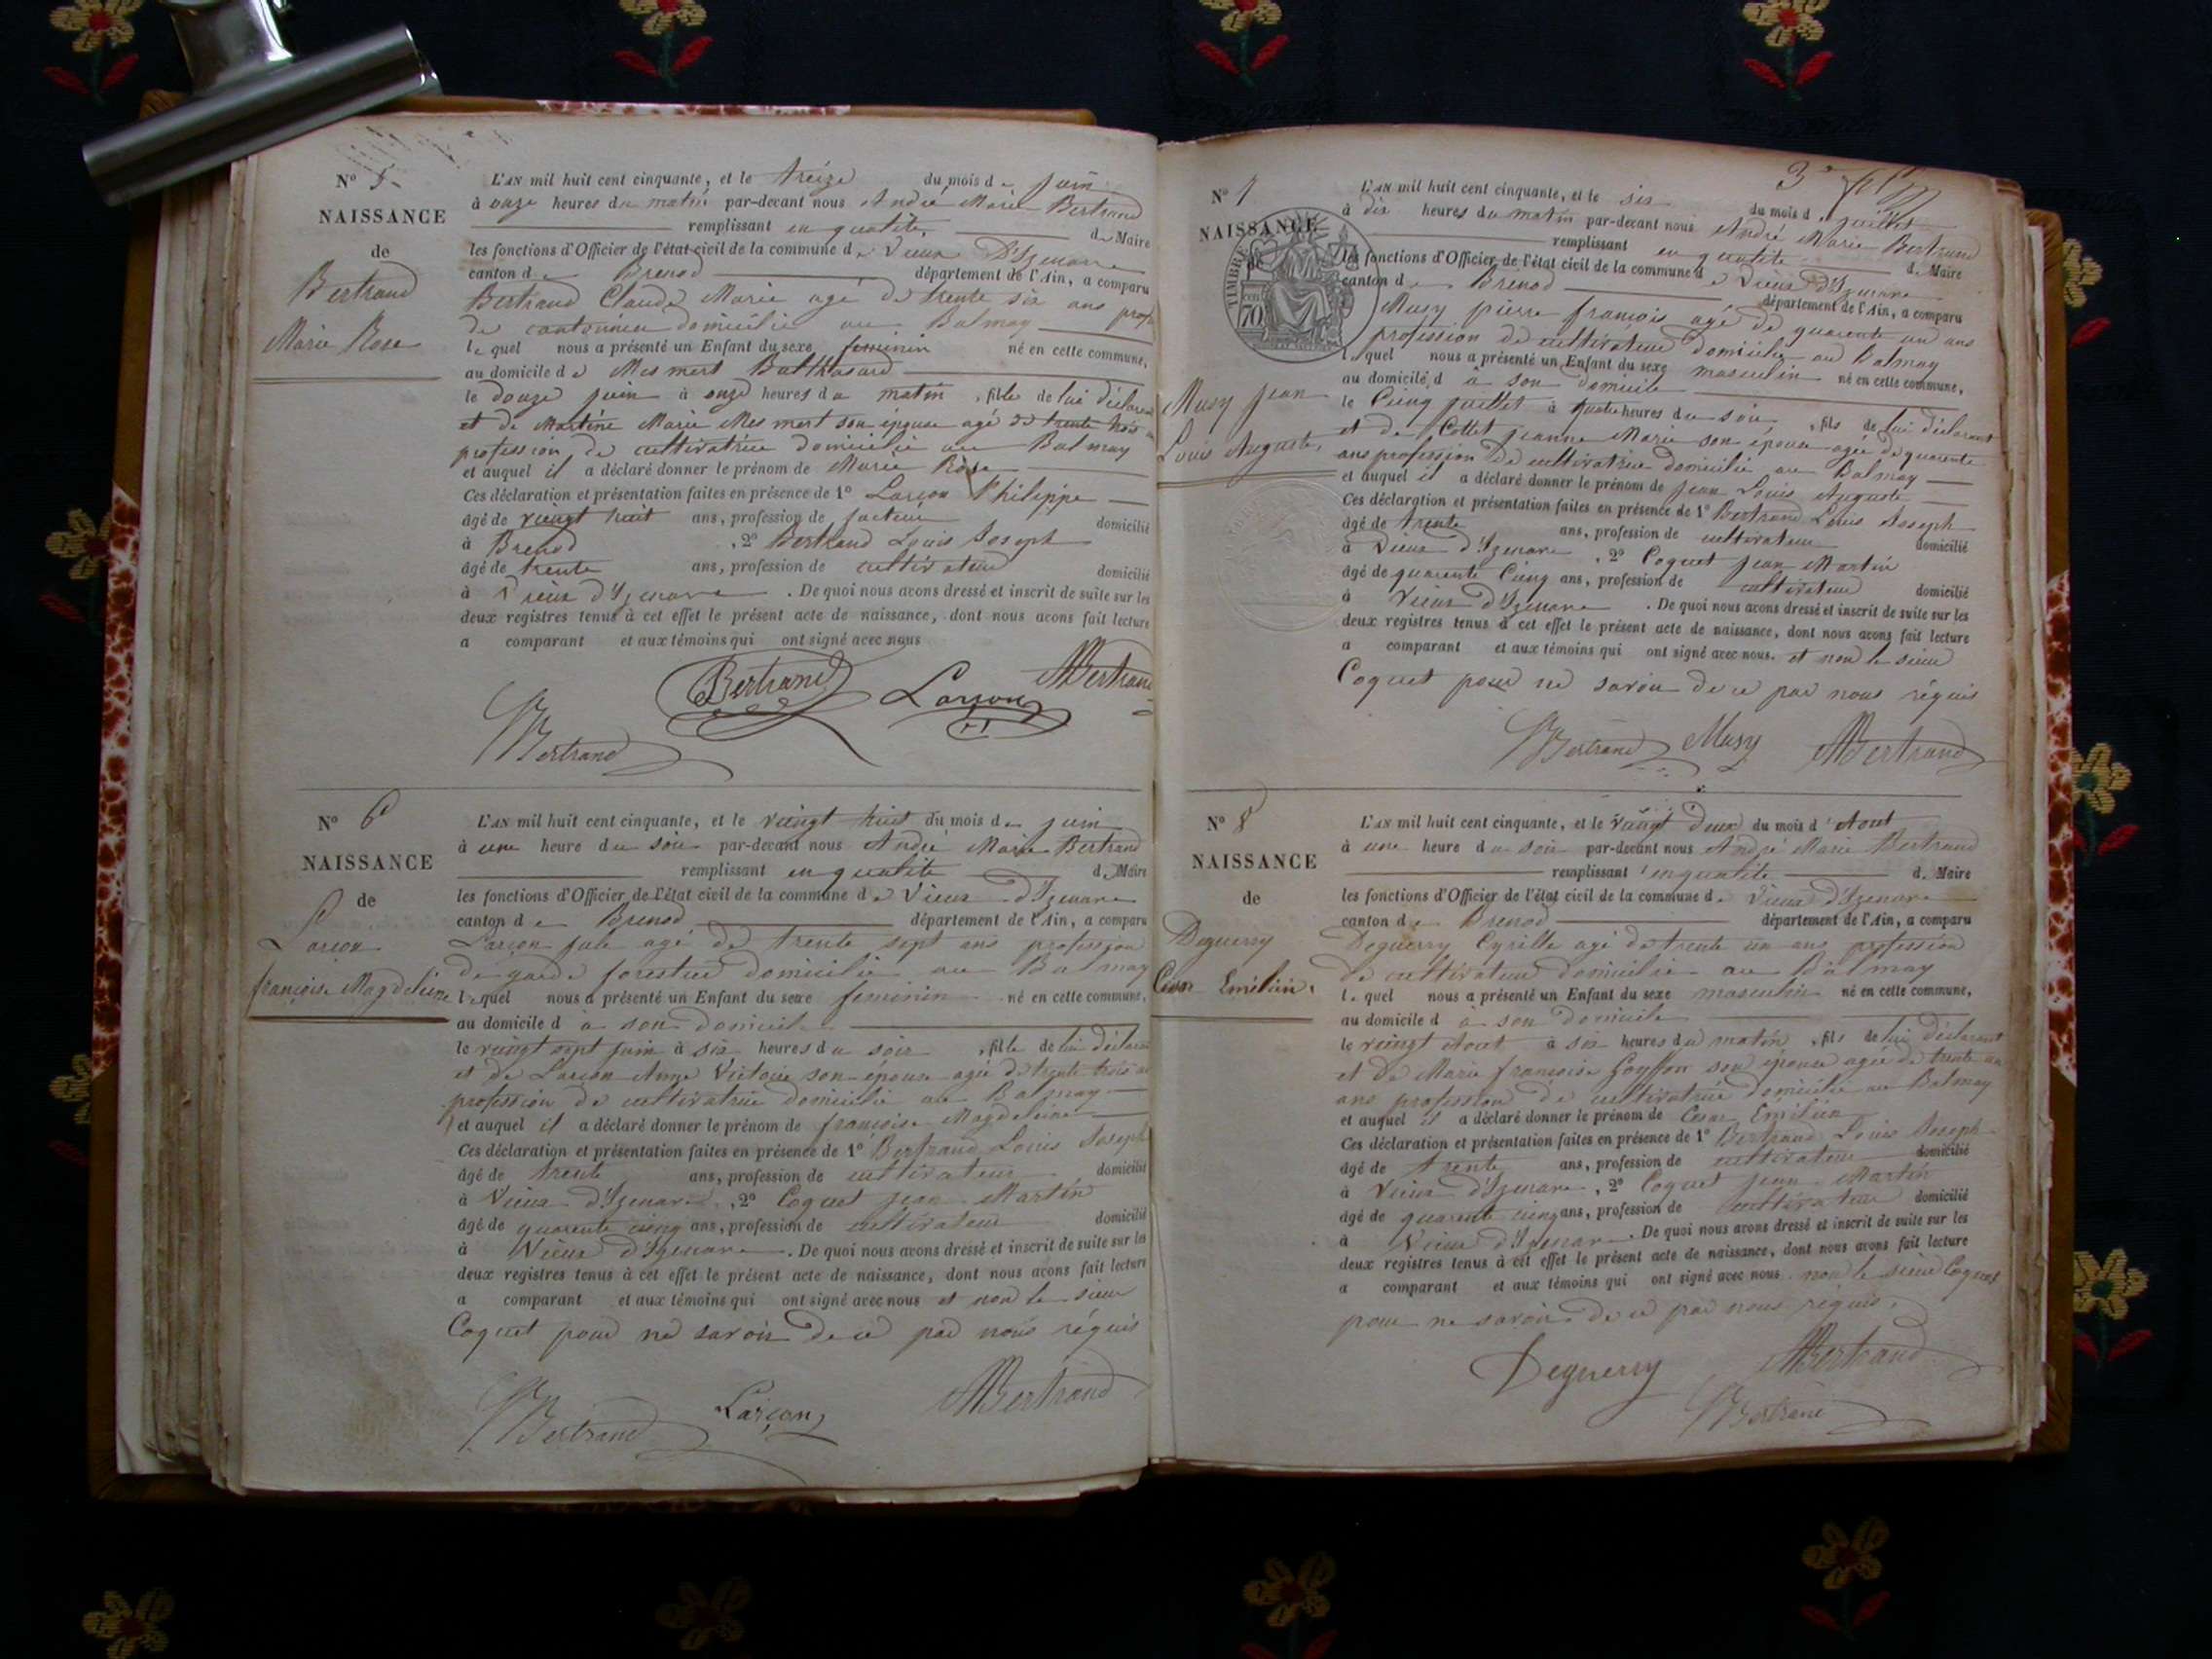 N° 5
NAISSANCE
de
Bertrand
Marie Rose
L'AN mil huit cent cinquante, et le treize du mois de juin
à onze heures du matin par-devant nous André Marie Bertrand
remplissant en qualité de Maire
les fonctions d'Officier de l'état civil de la commune de Vieux D'Izenave
canton de Brenod département de l'Ain, a comparu
Bertrand Claude Marie agé de trente six ans prof
de cantonnier domicilié au Balmay
lequel nous a présenté un Enfant du sexe feminin né en cette commune,
au domicile de Mesmert Balthasard
le douze juin à onze heures du matin, fille de lui déclarant
et de Martine Marie Mesmert son épouse agé de trente trois
profession de cultivatrice domicilié au Balmay
et auquel il a déclaré donner le prénom de Marie Rose
Ces déclaration et présentation faites en présence de 1° Larçon Philippe
âgé de vingt huit ans, profession de facteur domicilié
à Brenod, 2° Bertrand Louis Joseph
âgé de trente ans, profession de cultivateur domicilié
à Vieux d'Izenave. De quoi nous avons dressé et inscrit de suite sur les
deux registres tenus à cet effet le présent acte de naissance, dont nous avons fait lecture
a comparant et aux témoins qui ont signé avec nous
Bertrand Larçon Bertrand
Bertrand
N° 6
NAISSANCE
de
Larçon
françoise Magdeleine
L'AN mil huit cent cinquante, et le vingt huit du mois de juin
à une heure du soir par-devant nous André Marie Bertrand
remplissant en qualité de Maire
les fonctions d'Officier de l'état civil de la commune de Vieux d'Izenave
canton de Brenod département de l'Ain, a comparu
Larçon jule agé de trente sept ans profession
de garde forestier domicilié au Balmay
lequel nous a présenté un Enfant du sexe feminin né en cette commune,
au domicile d à son domicile
le vingt sept juin à six heures du soir, fille de lui déclarant
et de Larçon Anne Victoire son épouse agée de trente trois
profession de cultivatrice domicilié au Balmay
et auquel il a déclaré donner le prénom de françoise Magdeleine
Ces déclaration et présentation faites en présence de 1° Bertrand Louis Joseph
âgé de trente ans, profession de cultivateur domicilié
à Vieux d'Izenave, 2° Coquet jean Martin
âgé de quarente cinq ans, profession de cultivateur domicilié
à Vieux d'Izenave. De quoi nous avons dressé et inscrit de suite sur les
deux registres tenus à cet effet le présent acte de naissance, dont nous avons fait lecture
a comparant et aux témoins qui ont signé avec nous et non le sieur
Coquet pour ne savoir de ce par nous réquis
Bertrand Larçon Bertrand
3e
N° 7
NAISSANCE
TIMBRE
70
Musy jean
Louis Auguste
L'AN mil huit cent cinquante, et le six du mois de juillet
à dix heures du matin par-devant nous André Marie Bertrand
remplissant en qualité de Maire
les fonctions d'Officier de l'état civil de la commune de Vieux d'Izenave
canton de Brenod département de l'Ain, a comparu
Musy pierre françois agé de quarente un ans
profession de cultivateur domicilié au Balmay
lequel nous a présenté un Enfant du sexe masculin né en cette commune,
au domicile d à son domicile
le Cinq juillet à quatre heures du soir, fils de lui déclarant
et de Collet jeanne Marie son épouse agée de quarente
ans profession de cultivatrice domicilié au Balmay
et auquel il a déclaré donner le prénom de jean Louis Auguste
Ces déclaration et présentation faites en présence de 1° Bertrand Louis Joseph
âgé de trente ans, profession de cultivateur domicilié
à Vieux d'Izenave, 2° Coquet jean Martin
âgé de quarente Cinq ans, profession de cultivateur domicilié
à Vieux d'Izenave. De quoi nous avons dressé et inscrit de suite sur les
deux registres tenus à cet effet le présent acte de naissance, dont nous avons fait lecture
a comparant et aux témoins qui ont signé avec nous. et non le sieur
Coquet pour ne savoir de ce par nous réquis
Bertrand Musy Bertrand
N° 8
NAISSANCE
de
Deguerry
Cesar Emilien
L'AN mil huit cent cinquante, et le vingt deux du mois d'Aout
à une heure du soir par-devant nous André Marie Bertrand
remplissant en qualité de Maire
les fonctions d'Officier de l'état civil de la commune de Vieux d'Izenave
canton de Brenod département de l'Ain, a comparu
Deguerry Cyrille agé de trente un ans profession
de cultivateur domicilié au Balmay
lequel nous a présenté un Enfant du sexe masculin né en cette commune,
au domicile d à son domicile
le vingt Aout à six heures du matin, fils de lui déclarant
et de Marie françoise Goyffon son épouse agée de trente un
ans profession de cultivatrice domicilié au Balmay
et auquel il a déclaré donner le prénom de Cesar Emilien
Ces déclaration et présentation faites en présence de 1° Bertrand Louis Joseph
âgé de trente ans, profession de cultivateur domicilié
à Vieux d'Izenave, 2° Coquet jean Martin
âgé de quarente cinq ans, profession de cultivateur domicilié
à Vieux d'Izenave. De quoi nous avons dressé et inscrit de suite sur les
deux registres tenus à cet effet le présent acte de naissance, dont nous avons fait lecture
a comparant et aux témoins qui ont signé avec nous non le sieur Coquet
pour ne savoir de ce par nous réquis.
Deguerry Bertrand
Bertrand